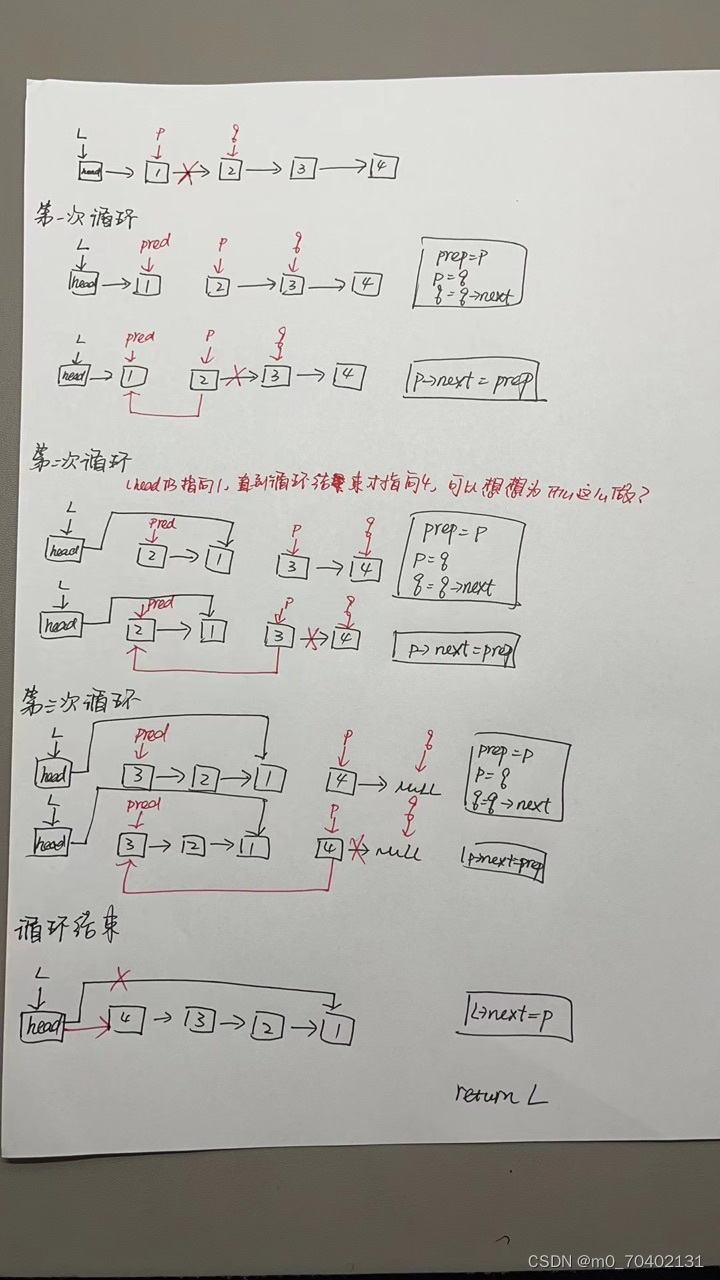 L P q
head 1 2 3 4
第一次循环
L pred P q
head 1 2 3 4
prep=p
p=q
q=q→next
L pred P q
head 1 2 3 4
p→next=prep
第二次循环
Lhead仍指向1，直到循环结束才指向4，可以想想为什么这么做？
L pred P q
head 2 1 3 4
prep=p
p=q
q=q→next
L pred P q
head 2 1 3 4
p→next=prep
第三次循环
L pred P q
head 3 2 1 4 null
prep=p
p=q
q=q→next
L pred P q
head 3 2 1 4 null
p→next=prep
循环结束
L
head 4 3 2 1
L→next=p
return L
CSDN @m0_70402131